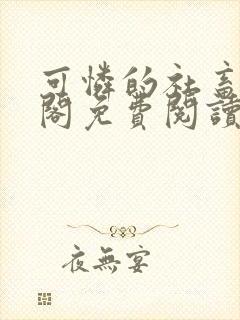 可憐的社畜
閣免費閱讀
夜無宴